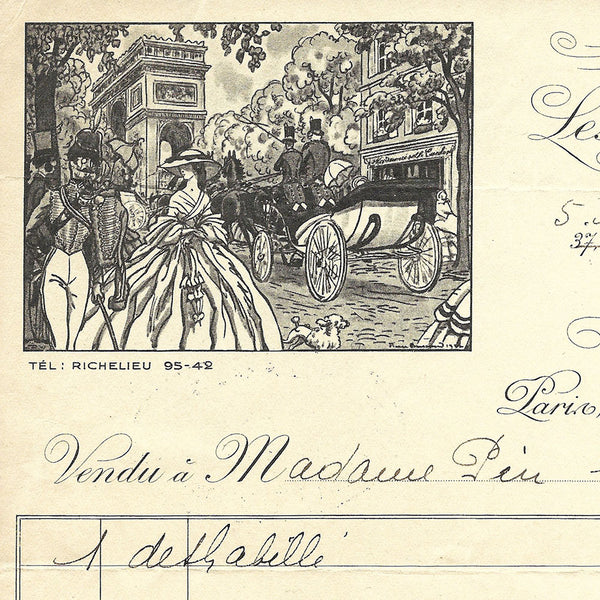 Les
5
37
TÉL: RICHELIEU 95-42
Paris,
Vendu à Madame
1 deshabillé